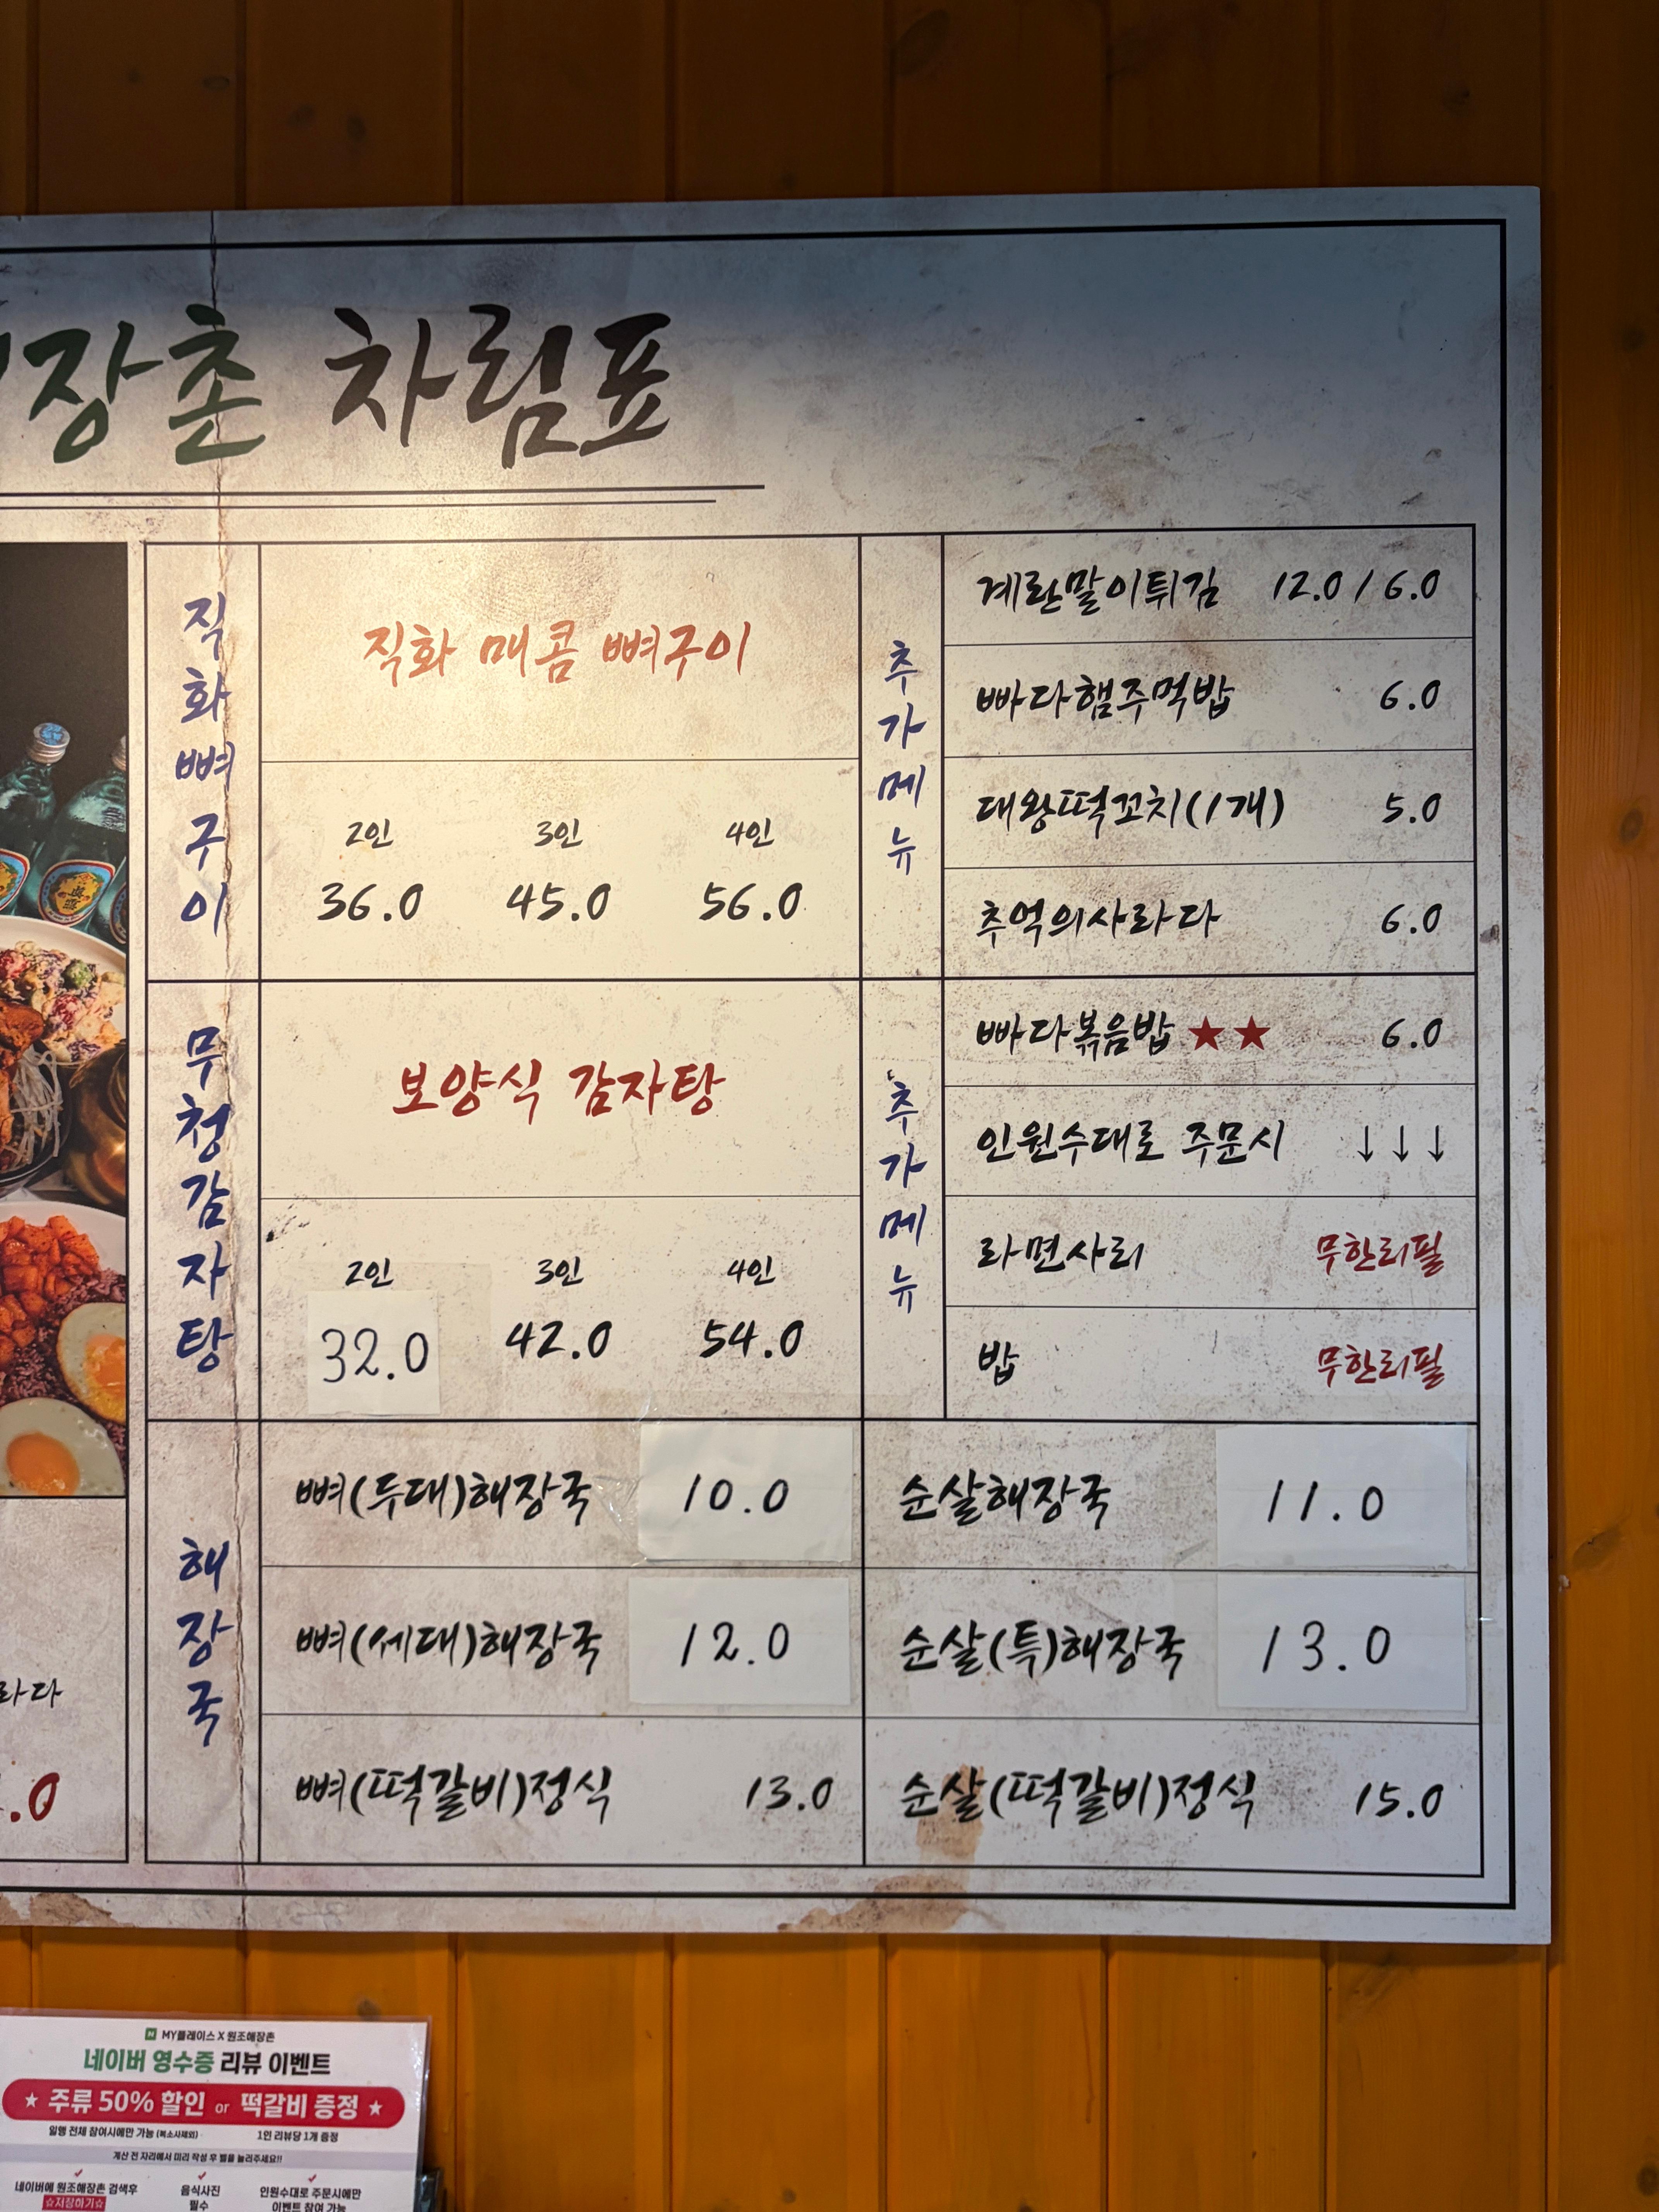 장촌 차림표
직화뼈구이
직화 매콤 뼈구이
2인 3인 4인
36.0 45.0 56.0
추가메뉴
계란말이튀김 12.0 / 6.0
빠다햄주먹밥 6.0
대왕떡꼬치(1개) 5.0
추억의사라다 6.0
무청감자탕
보양식 감자탕
2인 3인 4인
32.0 42.0 54.0
추가메뉴
빠다볶음밥 ★★ 6.0
인원수대로 주문시 ↓ ↓ ↓
라면사리 무한리필
밥 무한리필
해장국
뼈(두대)해장국 10.0
순살해장국 11.0
뼈(세대)해장국 12.0
순살(특)해장국 13.0
뼈(떡갈비)정식 13.0
순살(떡갈비)정식 15.0
라다
.0
MY플레이스 X 원조해장촌
네이버 영수증 리뷰 이벤트
★ 주류 50% 할인 or 떡갈비 증정 ★
일행 전체 참여시에만 가능 (복소사제외) 1인 리뷰당 1개 증정
계산 전 자리에서 미리 작성 후 벨을 눌러주세요!!
네이버에 원조해장촌 검색후
☆저장하기☆
음식사진
필수
인원수대로 주문시에만
이벤트 참여 가능